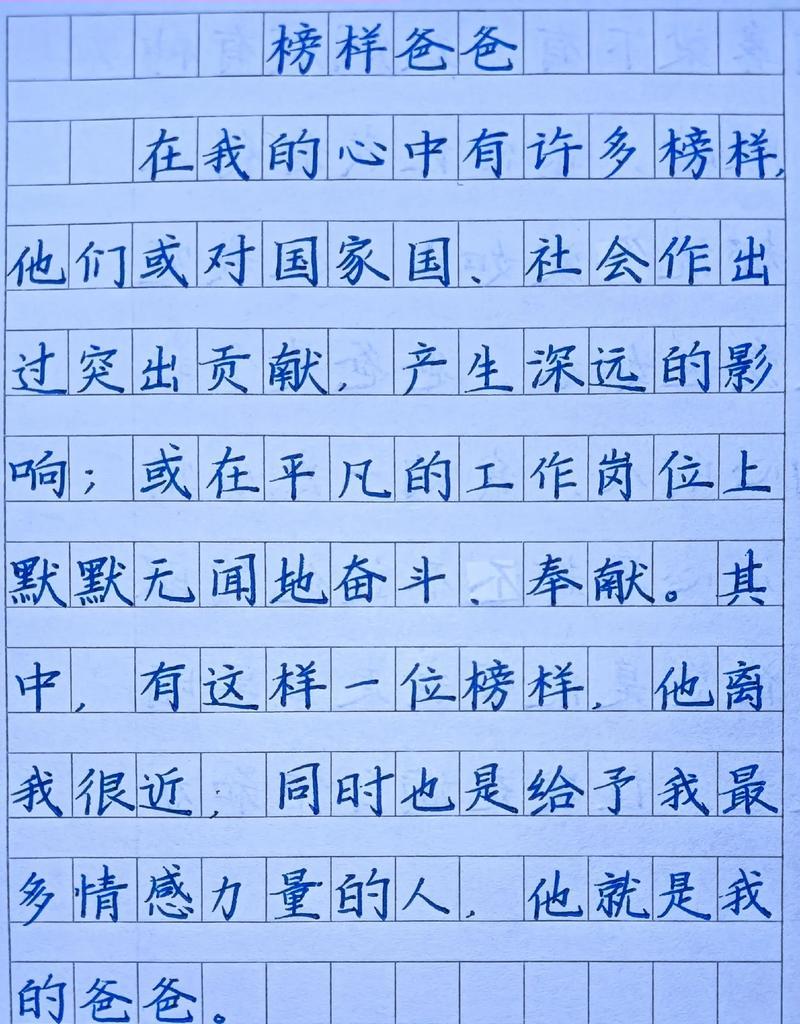 榜样爸爸
在我的心中有许多榜样,
他们或对国家国、社会作出
过突出贡献,产生深远的影
响;或在平凡的工作岗位上
默默无闻地奋斗、奉献。其
中,有这样一位榜样,他离
我很近;同时也是给予我最
多情感力量的人,他就是我
的爸爸。